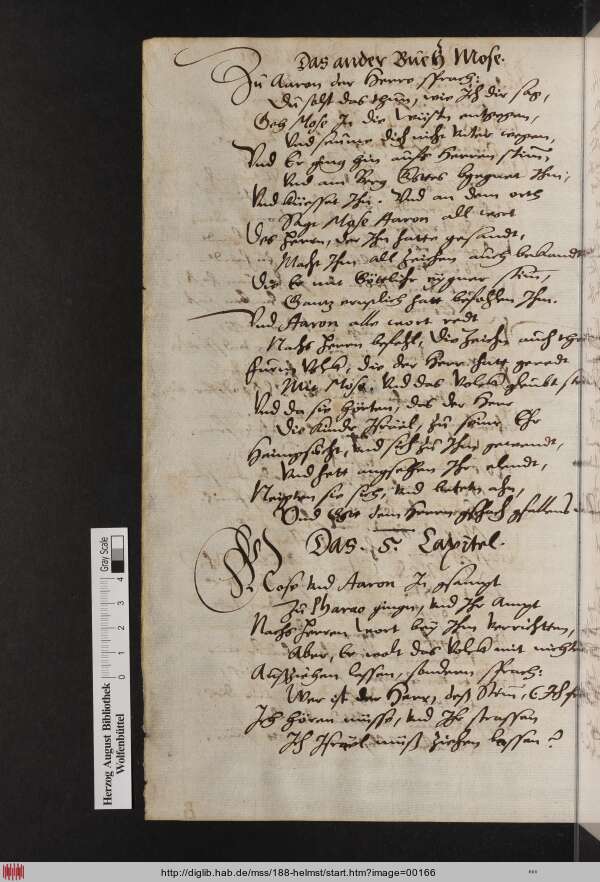 Das ander Buch Mose.
Zu Aaron der Herre sprach:
Du solst das thun, wie Ich dir sag,
Geh Mose In die Wüsten entgegen,
Vnd saume dich nicht vnter wegen,
Vnd Er ging hin auffs Herren stimm,
Vnd am Berg Gottes begegnet Ihm,
Vnd küsset Ihn. Vnd an dem orth
Sagt Mose Aaron all wort
Des Herrn, der Ihn hatte gesandt,
Macht Ihm all Zeichen auch bekandt
Die Er mit Göttlicher stim,
Gantz ernstlich hatt befohlen Ihm.
Vnd Aaron alle wort redt
Nachs Herrn befehl, die Zeichen auch
Fürm Volck, die der Herr hatt geredt
Mit Mose, Vnd das Volck glaubt
Vnd da sie hörten, das der Herr
Die Kinder Israel, zu seiner Ehr
Heimgsucht, vnd sich zu Ihn gewendt,
Vnd hett angesehen Ihr elendt,
Neigten sie sich, vnd beteten ahn,
Vnd Gott dem Herren
Das .5. Capitel.
Mose vnd Aaron In gsampt
Zu Pharao gingen, vnd Ihr Ampt
Nachs Herren wort bey Ihm verrichtten,
Aber, Er wolt das Volck mit nichten
Außziehen lassen, sondern sprach:
Wer ist der Herr, deß Stim, Ich
Ich hören müsse, vnd Ihr
Ich Israel muß ziehen lassen?
Herzog August Bibliothek
Wolfenbüttel
0 1 2 3 4
Gray Scale
http://diglib.hab.de/mss/188-helmst/start.htm?image=00166